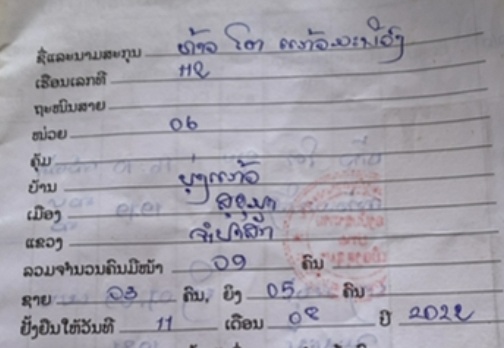 ຊື່ແລະນາມສະກຸນ ທ້າວ ໂຕ
ເຮືອນເລກທີ 112
ຖະໜົນສາຍ
ໜ່ວຍ 06
ຄຸ້ມ
ບ້ານ
ເມືອງ ສຸຂຸມາ
ແຂວງ ຈຳປາສັກ
ລວມຈຳນວນຄົນມີໜ້າ 09 ຄົນ
ຊາຍ 03 ຄົນ, ຍິງ 05 ຄົນ
ຢັ້ງຢືນໃຫ້ວັນທີ 11 ເດືອນ 08 ປີ 2022